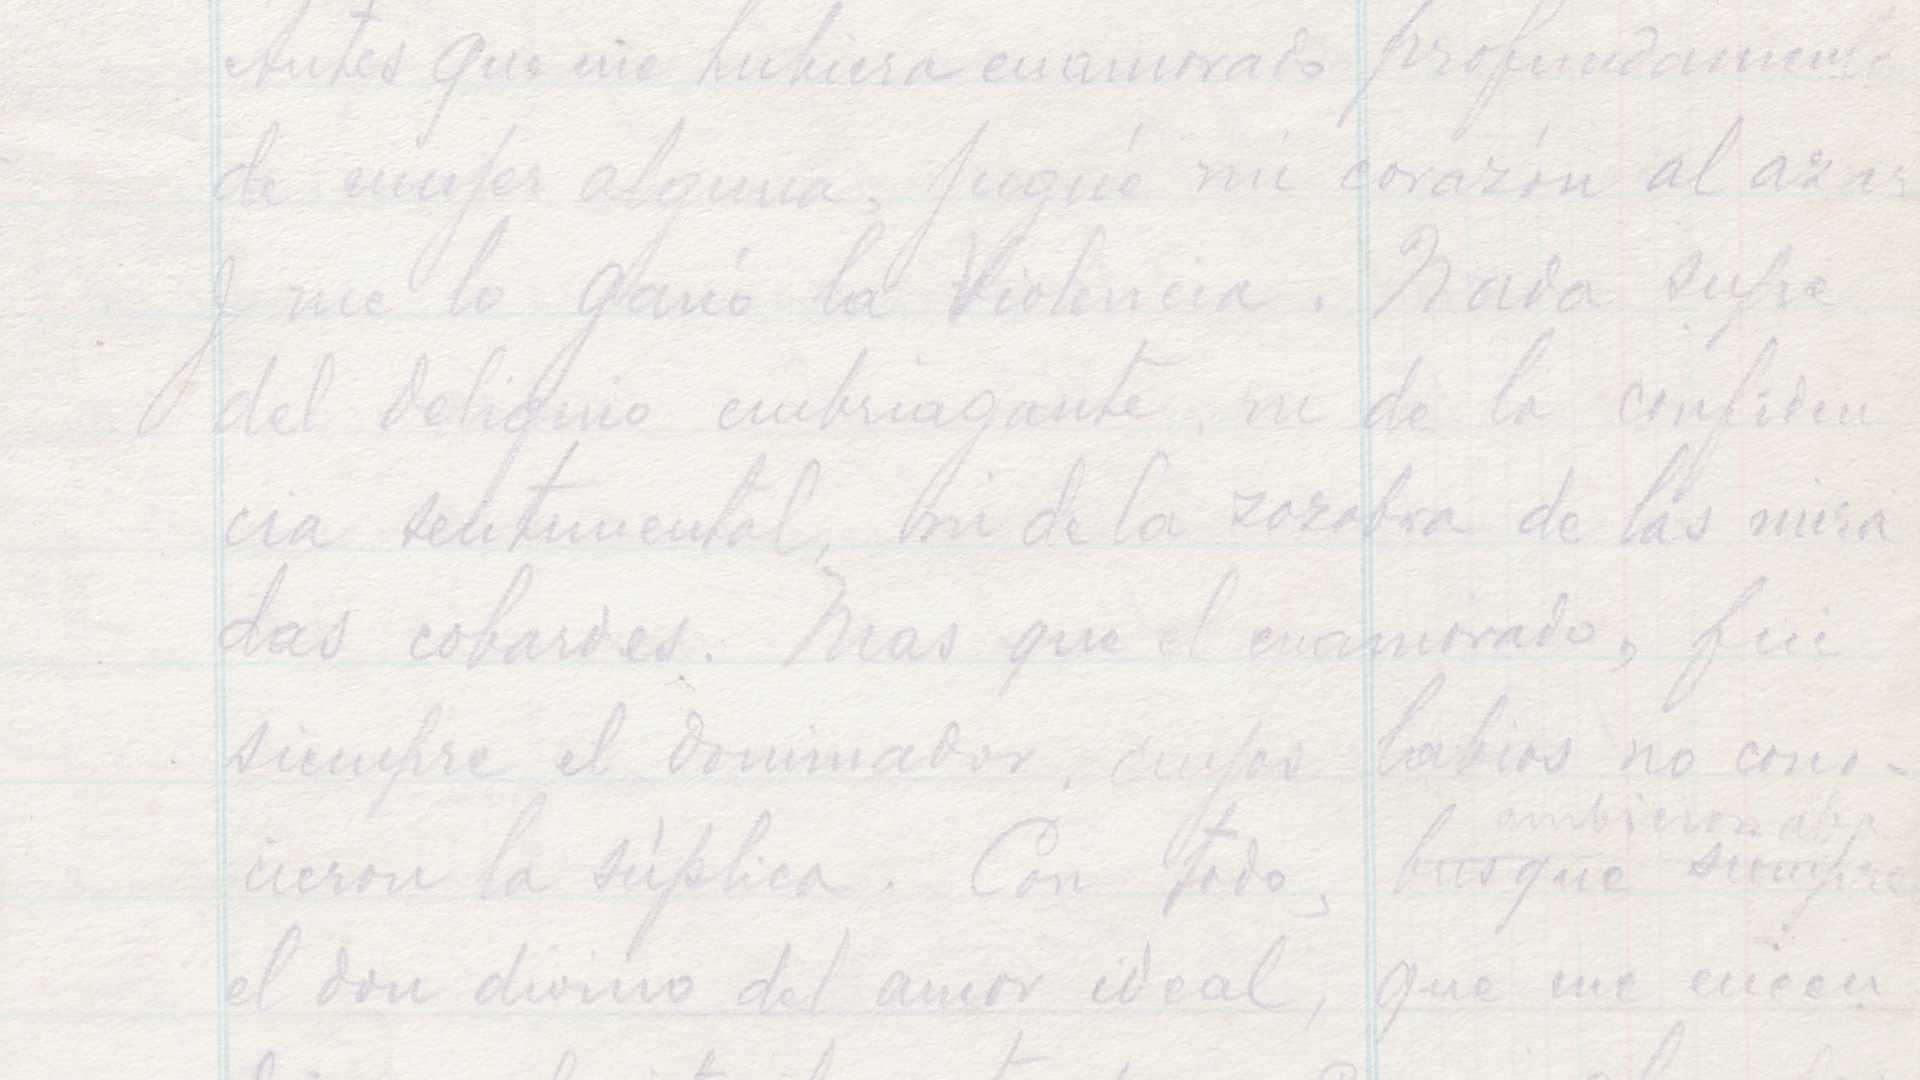 Antes que me hubiera enamorado profundamente
de mujer alguna, jugué mi corazón al azar
y me lo ganó la Violencia. Nada supe
del deliquio embriagante, ni de la confiden
cia sentimental, ni de la zozobra de las mira
das cobardes. Mas que el enamorado, fui
siempre el dominador, cuyos labios no cono-
cieron la súplica. Con todo, busqué siempre
ambicionaba
el don divino del amor ideal, que me encen